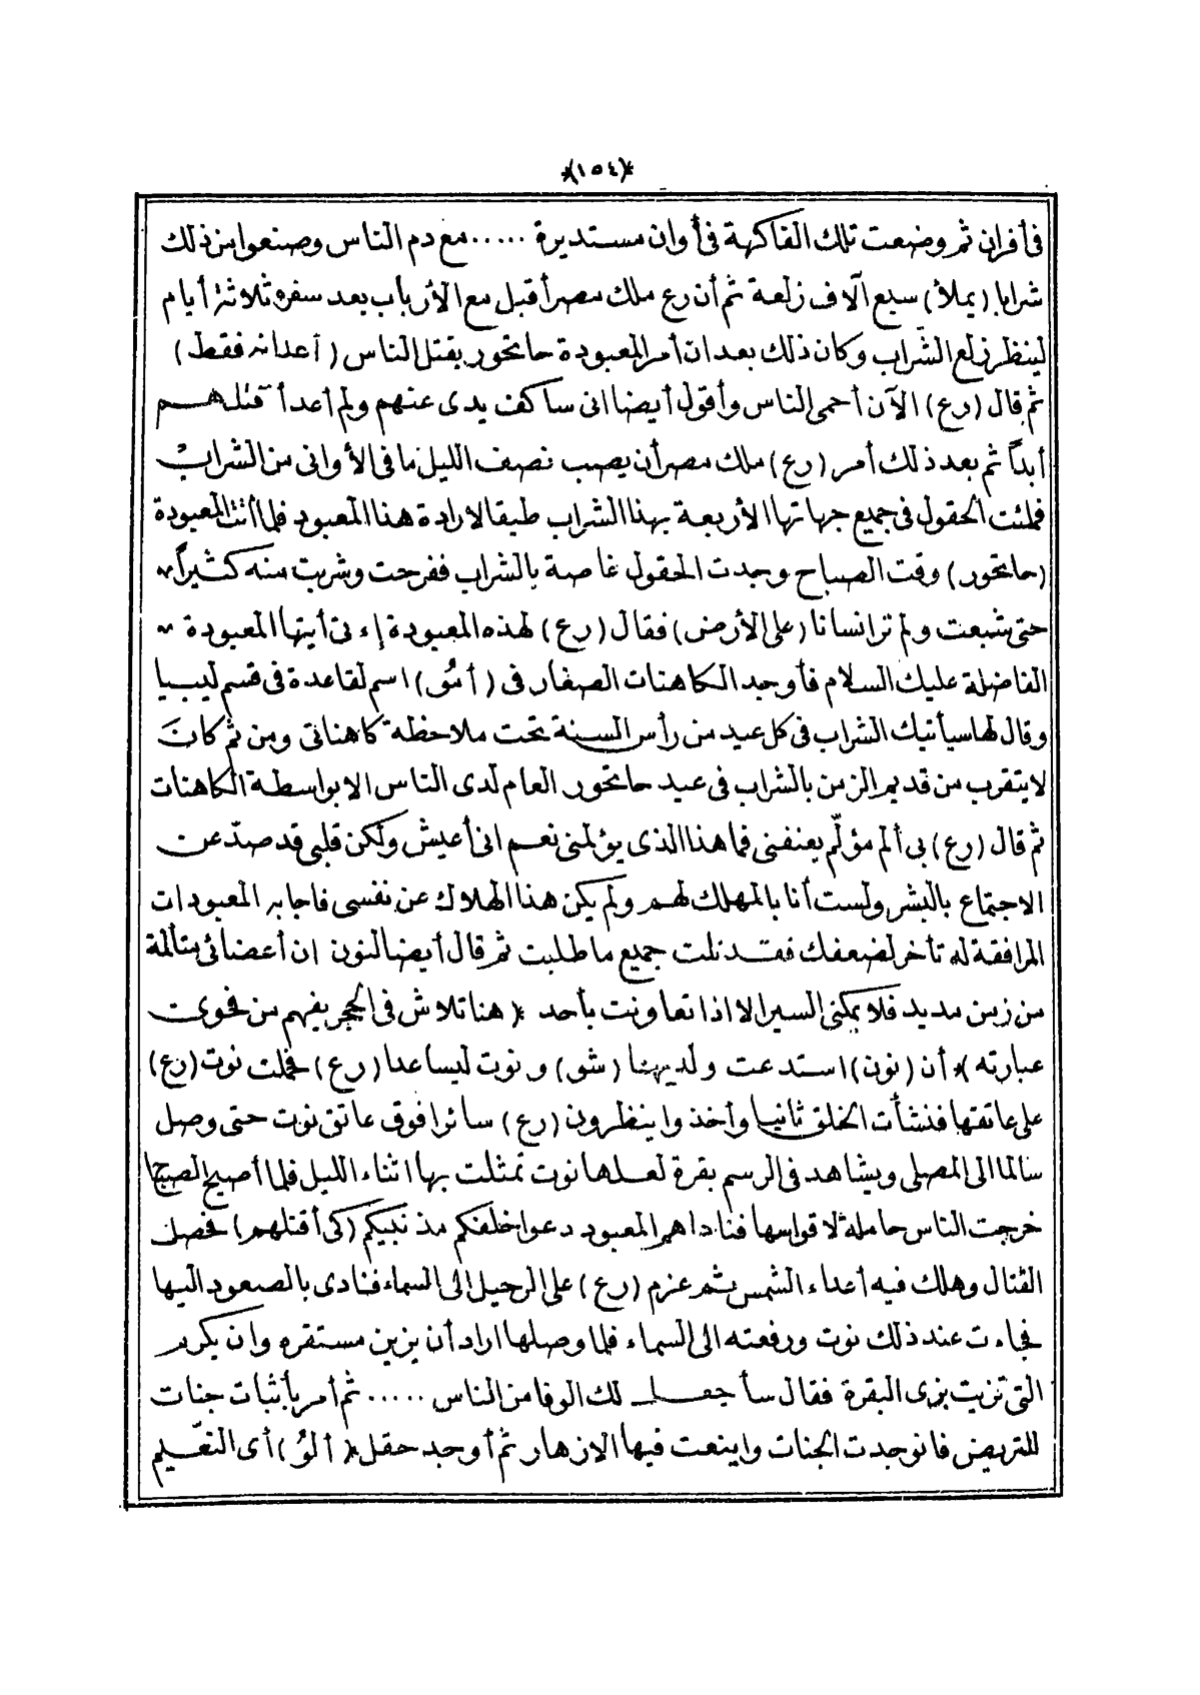 *(١٥٤)*
فى أفران ثم وضعت تلك الفاكهة فى أوان مستديرة ..... مع دم الناس وصنعوا من ذلك
شرابا (يملأ) سبع آلاف زلعة ثم أن رع ملك مصر أقبل مع الأرباب بعد سفره ثلاثة أيام
لينظر زلع الشراب وكان ذلك بعد ان أمر المعبودة حاتحور بقتل الناس (أعدائه فقط)
ثم قال (رع) الآن أحمى الناس وأقول أيضا انى سأكف يدى عنهم ولم أعد أقتلهم
أبداً ثم بعد ذلك أمر (رع) ملك مصر أن يصب نصف الليل ما فى الأوانى من الشراب
فملئت الحقول فى جميع جهاتها الأربعة بهذا الشراب طبقا لارادة هذا المعبود فلما أتت المعبودة
(حاتحور) وقت الصباح وجدت الحقول غاصة بالشراب ففرحت وشربت منه كثيراً
حتى شبعت ولم تر انسانا (على الأرض) فقال (رع) لهذه المعبودة إءتى أيتها المعبودة
الفاضلة عليك السلام فأوجد الكاهنات الصغار فى (أمُو) اسم لقاعدة فى قسم ليبيا
وقال لها سيأتيك الشراب فى كل عيد من رأس السنة تحت ملاحظة كاهناتى ومن ثم كان
لا يتقرب من قديم الزمن بالشراب فى عيد حاتحور العام لدى الناس الا بواسطة الكاهنات
ثم قال (رع) بى ألم مؤلّم يعنفنى فما هذا الذى يؤلمنى نعم انى أعيش ولكن قلبى قد صدّ عن
الاجتماع بالبشر ولست أنا بالمهلك لهم ولم يكن هذا الهلاك عن نفسى فاجابه المعبودات
المرافقة له تأخر لضعفك فقد نلت جميع ما طلبت ثم قال أيضا لنون ان أعضائى متألمة
من زمن مديد فلا يمكنى السير الا اذا تعاونت بأحد *(هنا تلاش فى الحجر يفهم من فحوى
عبارته)* أن (نون) استدعت ولديها (شو) ونوت ليساعدا (رع) فحملت نوت (رع)
على عاتقها فنشأت الخلق ثانيا وأخذوا ينظرون (رع) سائرا فوق عاتق نوت حتى وصل
سالما الى المصلى ويشاهد فى الرسم بقرة لعلها نوت تمثلت بها اثناء الليل فلما أصبح الصباح
خرجت الناس حاملة لاقواسها فناداهم المعبود دعوا خلفكم مذنبيكم (كى أقتلهم) فحصل
القتال وهلك فيه أعداء الشمس ثم عزم (رع) على الرحيل الى السماء فنادى بالصعود اليها
فجاءت عند ذلك نوت ورفعته الى السماء فلما وصلها اراد أن يزين مستقره وان يكرم
التى تزيت بزى البقرة فقال سأجعل لك الوفا من الناس ..... ثم أمر بأثبات جنات
للتريض فانوجدت الجنات واينعت فيها الازهار ثم أوجد حقل (ألوُ) أى النعيم